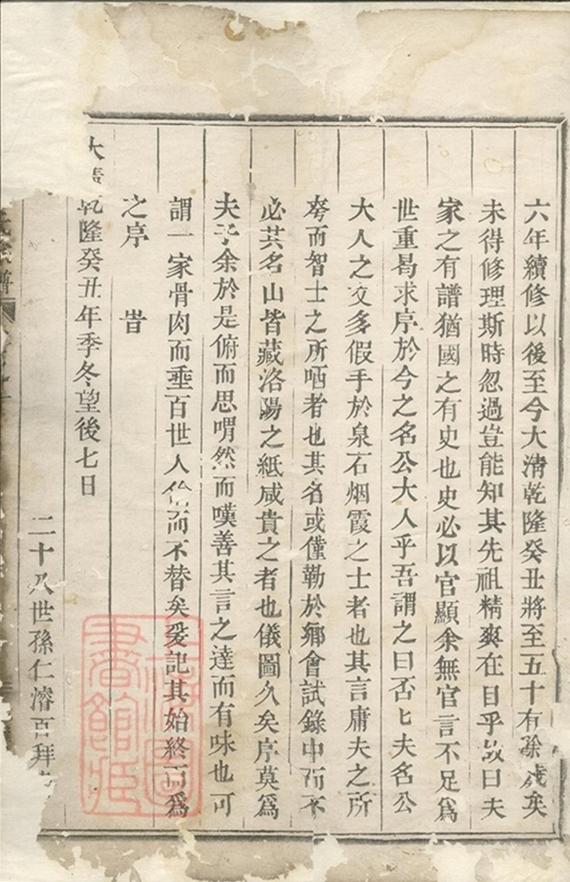 六年續修以後至今大清乾隆癸丑將至五十有餘歲矣
未得修理斯時忽過豈能知其先祖精爽在目乎故曰夫
家之有譜猶國之有史也史必以官顯余無官言不足爲
世重曷求序於今之名公大人乎吾謂之曰否匕夫名公
大人之文多假手於泉石烟霞之士者也其言庸夫之所
夸而智士之所哂者也其名或僅勒於鄉會試錄中而不
必其名山皆藏洛陽之紙咸貴之者也儀圖久矣序莫爲
夫子余於是俯而思喟然而嘆善其言之達而有味也可
謂一家骨肉而垂百世人倫而不替矣爰記其始終而爲
之序 旹
大清乾隆癸丑年季冬望後七日
二十八世孫仁濬百拜
氏宗譜
書館